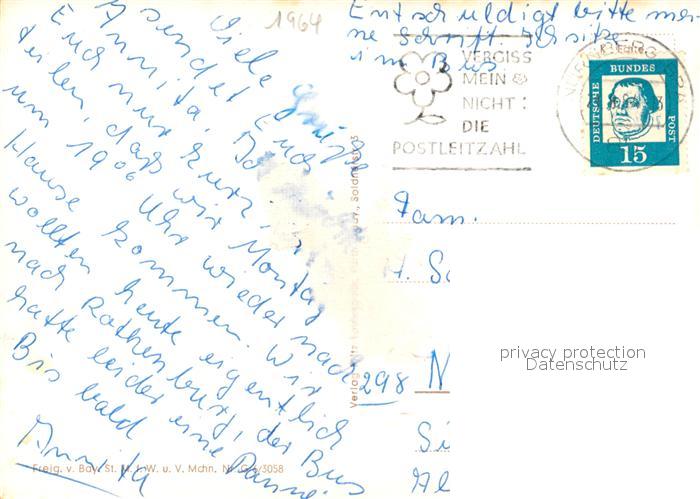 1964
Entschuldigt bitte mei-
ne Schrift. Ich sitze
im Bus
Viele Grüße
sendet Euch
Annita.
Euch nur kurz
teilen, daß wir Montag
um 19⁰⁰ Uhr wieder nach
Hause kommen. Wir
wollten heute eigentlich
nach Rothenburg, der Bus
hatte leider eine Panne.
Bis bald
Annita
VERGISS
MEIN
NICHT:
DIE
POSTLEITZAHL
DEUTSCHE
BUNDES
POST
15
Fam.
H. Sc
298 N
Si
Al
privacy protection
Datenschutz
Verlag
Freig. v. Bay. St. M. f. W. u. V. Mchn, Nr. G /3058